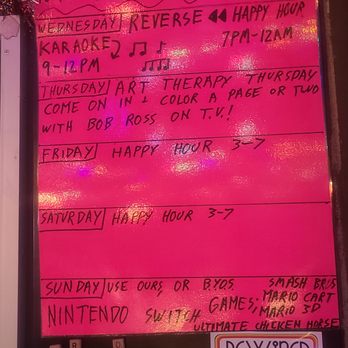 WEDNESDAY REVERSE HAPPY HOUR
KARAOKE 7PM-12AM
9-12PM
THURSDAY ART THERAPY THURSDAY
COME ON IN & COLOR A PAGE OR TWO
WITH BOB ROSS ON T.V.!
FRIDAY HAPPY HOUR 3-7
SATURDAY HAPPY HOUR 3-7
SUNDAY USE OURS, OR B.Y.O.S. SMASH BROS
NINTENDO SWITCH GAMES; MARIO CART
MARIO 3D
ULTIMATE CHICKEN HORSE